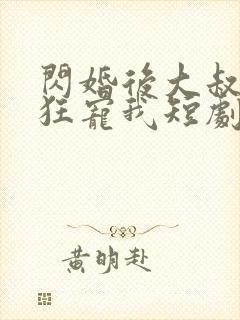 閃婚後大叔
狂寵我短劇
黃明赴